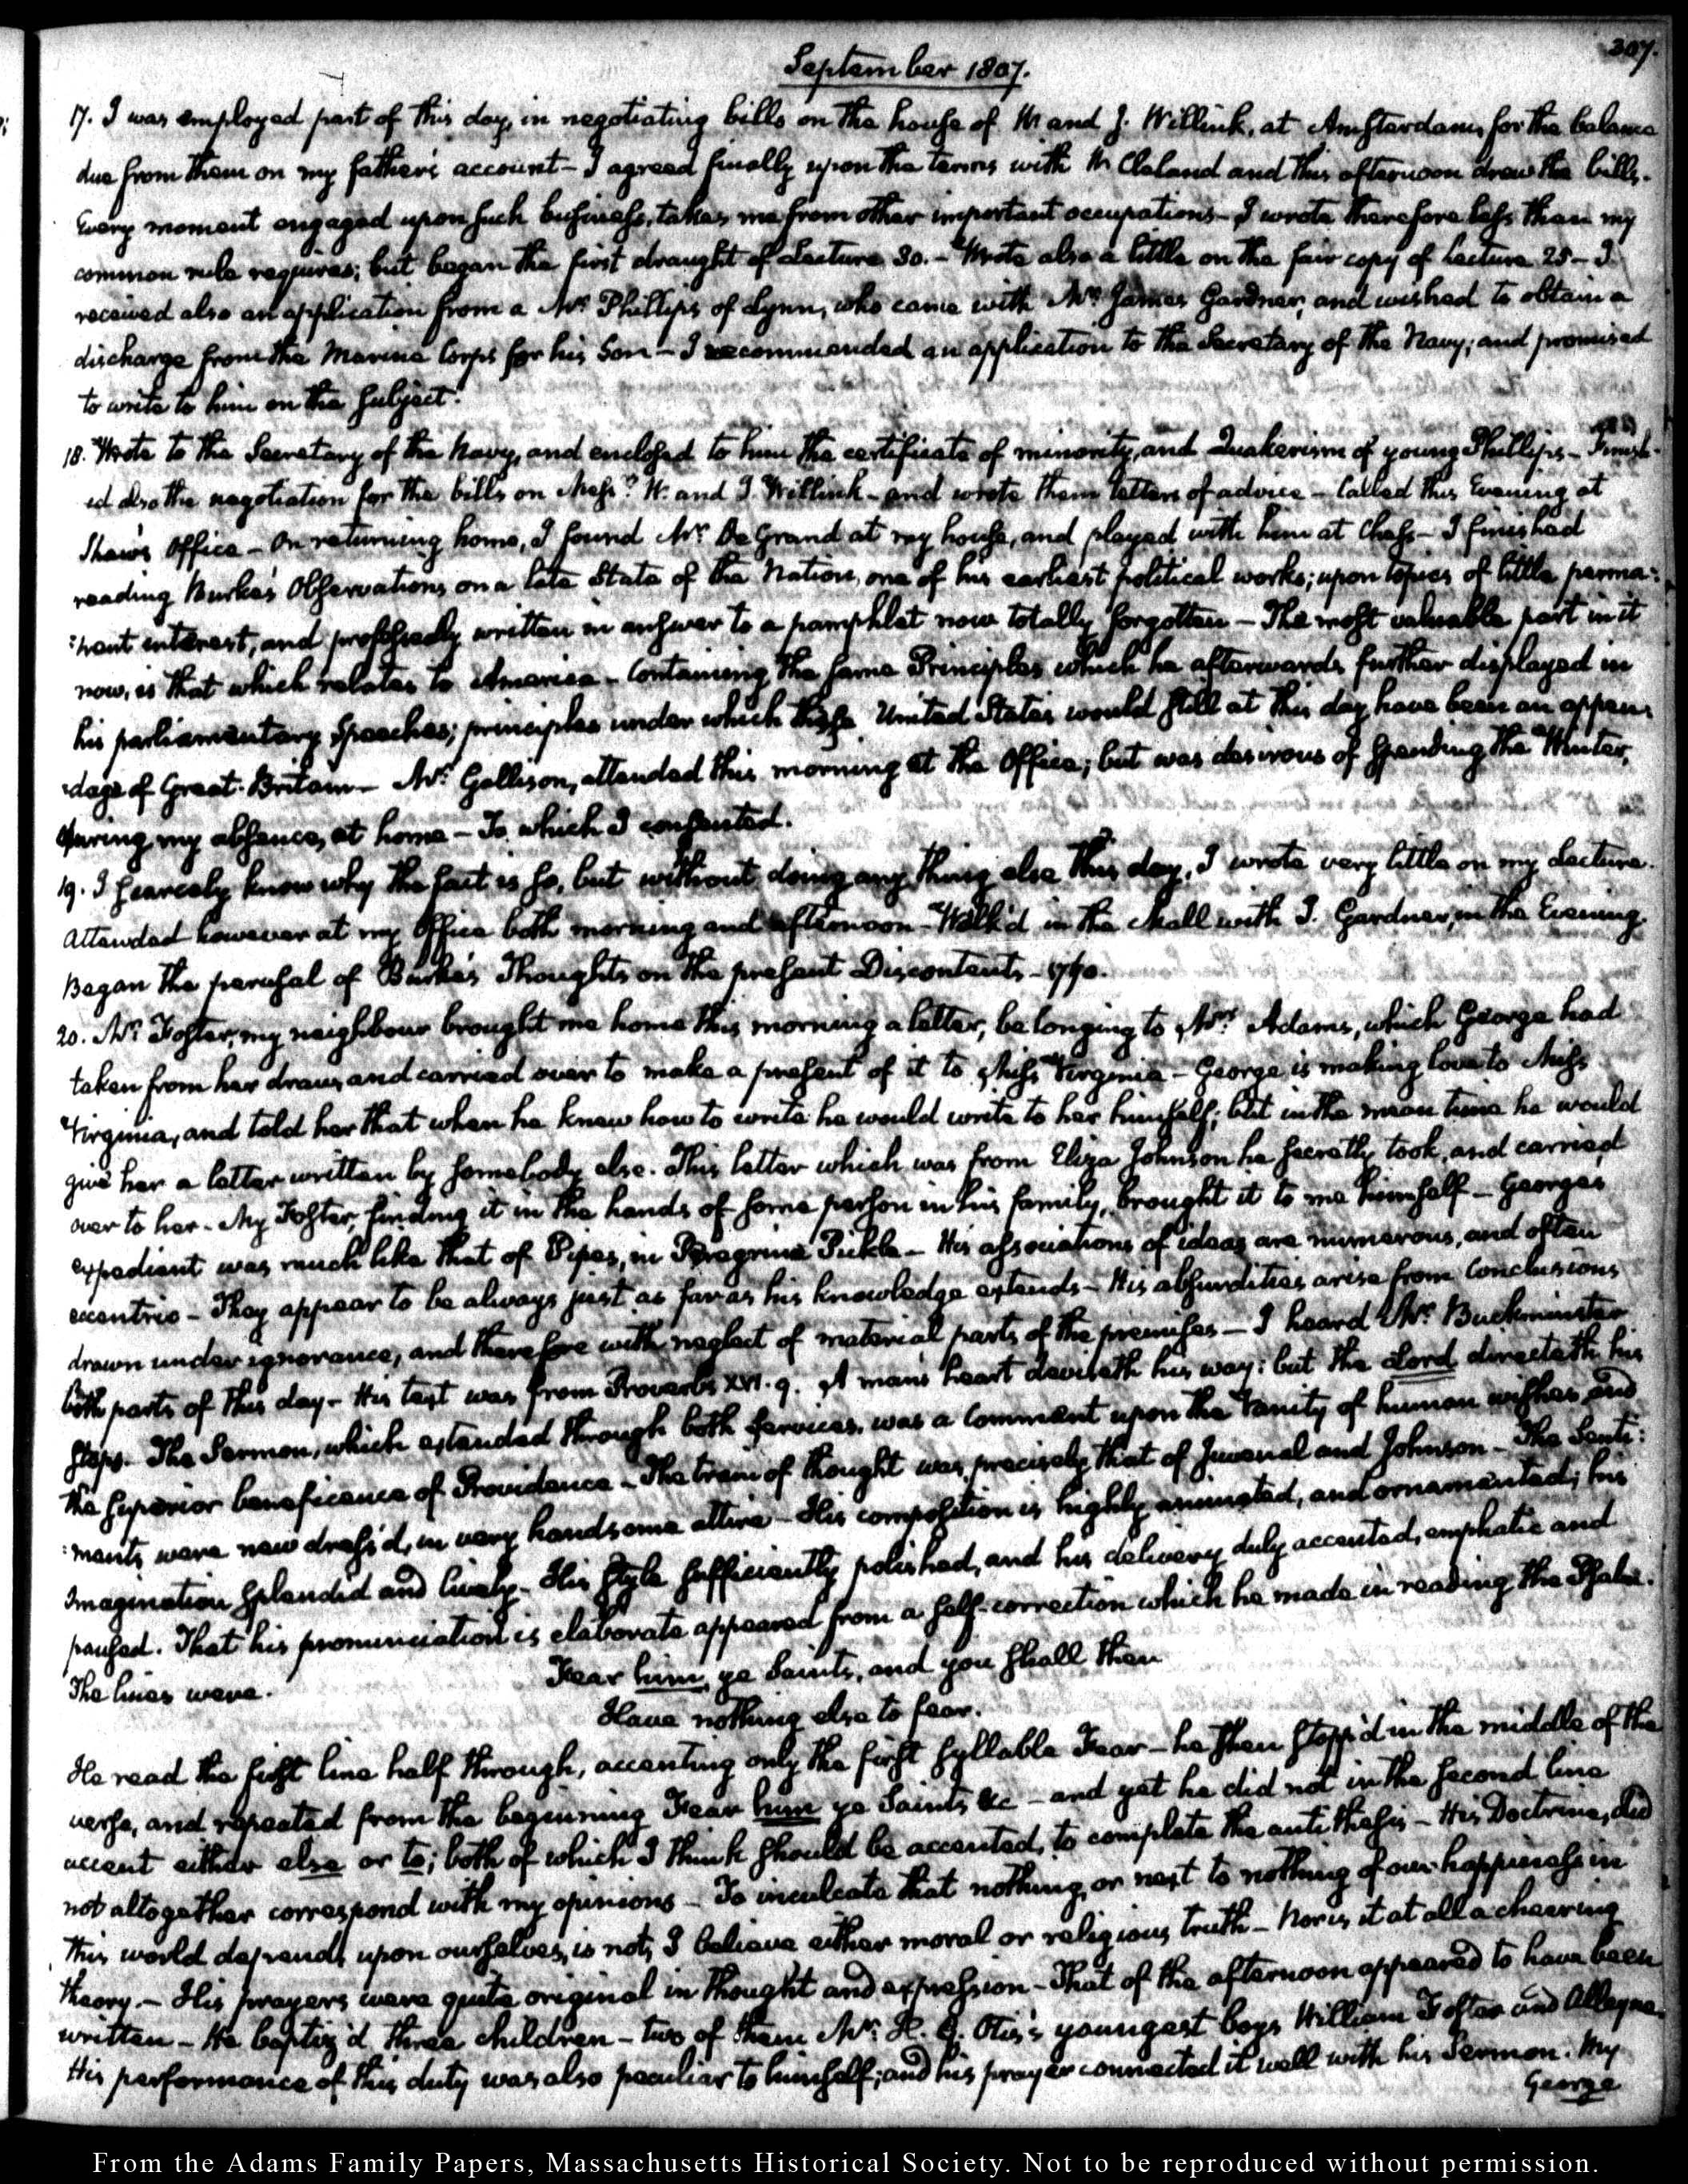 307.
September 1807.
17. I was employed part of this day, in negotiating bills on the house of W and J. Willink, at Amsterdam, for the balance
due from them on my father's account — I agreed finally upon the terms with Mr Cleland and this afternoon drew the bills.
Every moment engaged upon such business, takes me from other important occupations — I wrote therefore less than my
common rule requires; but began the first draught of Lecture 30. — Wrote also a little on the fair copy of Lecture 25 — I
received also an application from a Mr Phillips of Lynn, who came with Mr James Gardner, and wished to obtain a
discharge from the Marine Corps for his Son — I recommended an application to the Secretary of the Navy; and promised
to write to him on the subject.
18. Wrote to the Secretary of the Navy, and enclosed to him the certificate of minority, and Quakerism of young Phillips — Finish-
ed also the negotiation for the bills on Messrs W. and J. Willink — and wrote them letters of advice — Called this Evening at
Shaw's Office — On returning home, I found Mr De Grand at my house, and played with him at Chess — I finished
reading Burke's Observations on a late State of the Nation, one of his earliest political works; upon topics of little perma:
:nent interest, and professedly written in answer to a pamphlet now totally forgotten — The most valuable part in it
now, is that which relates to America — Containing the same Principles which he afterwards further displayed in
his parliamentary Speeches; principles under which these United States would still at this day have been an appen:
:dage of Great-Britain — Mr Gallison, attended this morning at the Office; but was desirous of spending the Winter,
during my absence, at home — To which I consented.
19. I scarcely know why the fact is so, but without doing any thing else this day, I wrote very little on my Lecture.
Attended however at my Office both morning and afternoon — Walk'd in the Mall with J. Gardner, in the Evening.
Began the perusal of Burke's Thoughts on the present Discontents — 1770.
20. Mr Foster, my neighbour brought me home this morning a letter, belonging to Mrs Adams, which George had
taken from her draw, and carried over to make a present of it to Miss Virginia — George is making love to Miss
Virginia, and told her that when he knew how to write he would write to her himself; but in the mean time he would
give her a letter written by somebody else. This letter which was from Eliza Johnson he secretly took, and carried
over to her — My Foster, finding it in the hands of some person in his family, brought it to me himself — George's
expedient was much like that of Pipes, in Peregrine Pickle — His associations of ideas are numerous, and often
eccentric — They appear to be always just as far as his knowledge extends — His absurdities arise from Conclusions
drawn under ignorance, and therefore with neglect of material parts of the premises — I heard Mr Buckminster
both parts of this day — His text was from Proverbs XVI. 9. A man's heart deviseth his way: but the Lord directeth his
steps. The Sermon, which extended through both services, was a Comment upon the Vanity of human wishes and
the superior beneficence of Providence — The train of thought was precisely that of Juvenal and Johnson — The Senti:
:ments were new dress'd, in very handsome attire — His composition is highly animated, and ornamented; his
Imagination splendid and lively — His style sufficiently polished, and his delivery duly accented, emphatic and
paused. That his pronunciation is elaborate appeared from a self-correction which he made in reading the Psalm.
The lines were.
Fear him, ye Saints, and you shall then
Have nothing else to fear.
He read the first line half through, accenting only the first syllable Fear — he then stopp'd in the middle of the
verse, and repeated from the beginning Fear him ye Saints &c — and yet he did not in the second line
accent either else or to; both of which I think should be accented, to complete the antithesis — His Doctrine, did
not altogether correspond with my opinions — To inculcate that nothing, or next to nothing of our happiness in
this world depends upon ourselves, is not, I believe either moral or religious truth — Nor is it at all a cheering
theory. — His prayers were quite original in thought and expression — That of the afternoon appeared to have been
written — He baptiz'd three children — two of them Mr. H. G. Otis's youngest boys William Foster and Alleyne.
His performance of this duty was also peculiar to himself; and his prayer connected it well with his Sermon. My
George
From the Adams Family Papers, Massachusetts Historical Society. Not to be reproduced without permission.